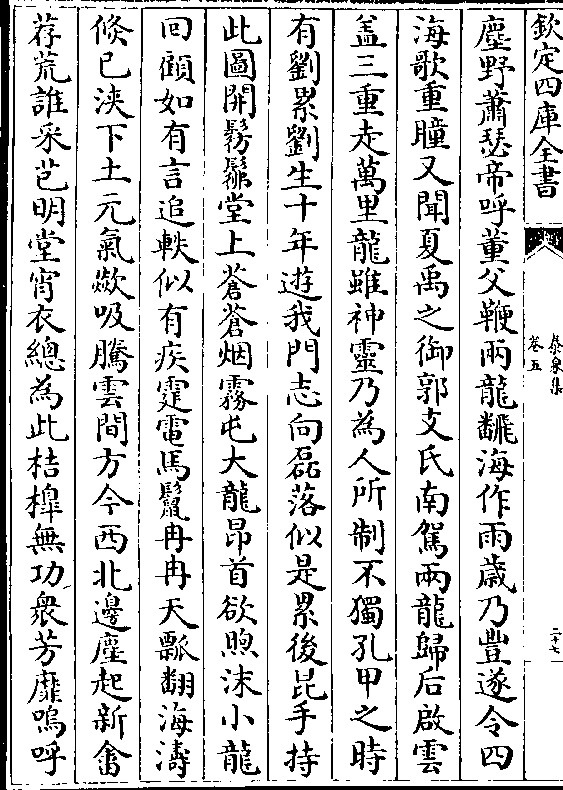 欽定四庫全書
泰泉集
卷五
二十七
塵野蕭瑟帝呼董父鞭兩龍飜海作雨歳乃豐遂令四
海歌重瞳又聞夏禹之御郭支氏南駕兩龍歸后啟雲
盖三重走萬里龍雖神靈乃為人所制不獨孔甲之時
有劉累劉生十年遊我門志向磊落似是累後昆手持
此圖開髣髴堂上蒼蒼烟霧屯大龍昂首欲煦沫小龍
回顧如有言追軼似有疾霆電馬鬛冉冉天瓢翻海濤
倐已浹下土元氣歘吸騰雲間方今西北邊塵起新畬
荐荒誰采芑明堂宵衣總為此桔槹無功衆芳靡嗚呼